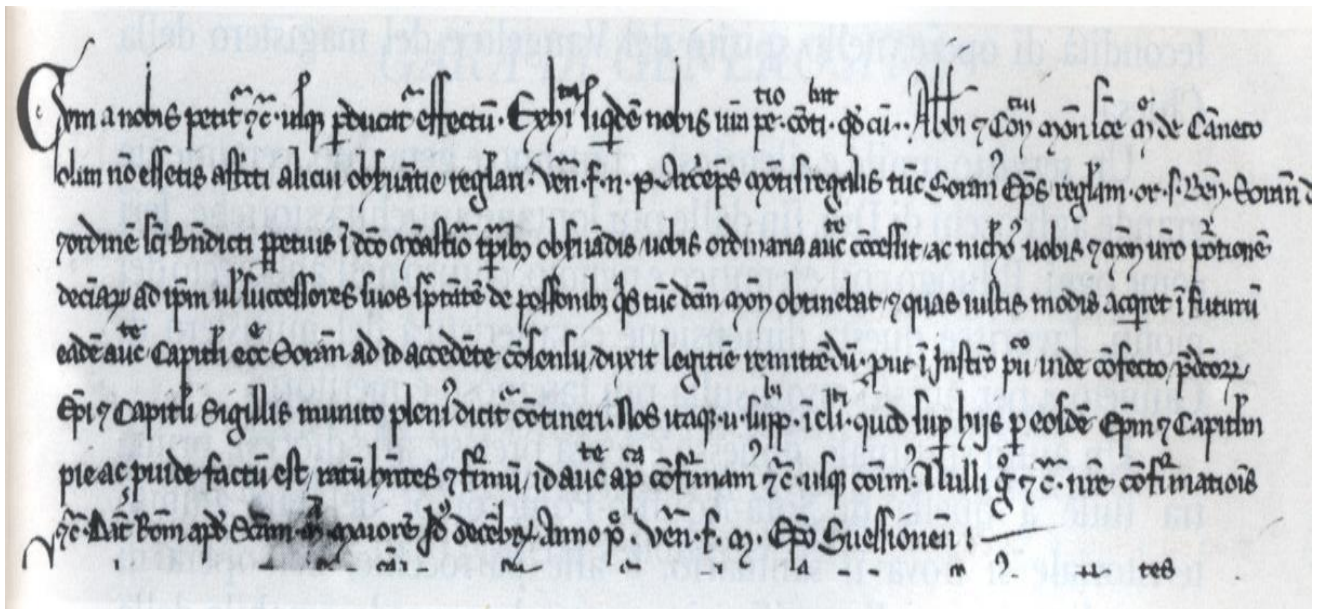 Cum a nobis petit̃ ⁊c̃ usq ꝑducat̃ effectũ. Exhi^ta siqdẽ nobis ur̃a pe^tio. cõti^bat. qd cũ .. Abbi ⁊ Con^tui mon̄ sc̃e M de Cãneto
olim nõ essetis astĩcti alicui obseruãtie reglari. Ven̄. f. n. p. Arcep̃s montisregalis tũc Soran̄ Ep̃s reglam. or. s. Ben̄. Soran̄ d
⁊ ordinẽ sc̃i Bñdicti ꝑpetuis ĩ dc̃o monastio tp̃ibꝫ obseruãdis uobis ordinaria auc^te cõcessit, ac nich^o uobis ⁊ mon̄ ur̃o portionẽ
decimaꝝ ad ip̃m ul̃ successores suos sp̃tãtẽ de possonibꝫ q̃s tũc dc̃m mon̄ obtinebat, ⁊ quas iustis modis acqret ĩ futurũ
eadẽ auc^te Capitli ecc^e Soran̄ ad id accedẽte cõsensu, duxit legitĩe remittẽdũ. put ĩ Instro pu^co inde cõfecto, p̃dc̃oꝝ
Ep̃i ⁊ Capitli Sigillis munito pleni^9 dicit̃ cõtineri. Nos itaqꝫ. u. supp. i^bi cli. quod suꝑ hijs ꝑ eosdẽ Ep̃m ⁊ Capitlm
pie ac puide factũ est, ratũ hñtes ⁊ firmũ, id auc^te ap^ca cõfirmam^9 ⁊c̃. usq cõim^9. Nulli g^o ⁊c̃. nr̃e cõfirmatiõis
⁊c̃. Dat̃ Rom̃ apd Scãm M maiorẽ Id decẽbꝝ. Anno p^o. Ven̄. f. M. Ep̃o Suessionen̄ i